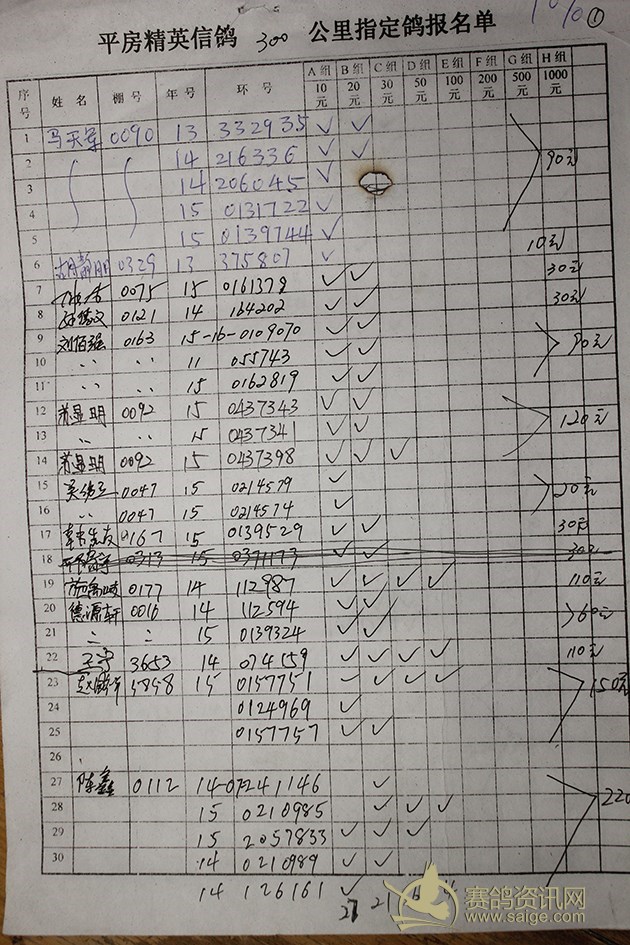 1%
①
平房精英信鸽 300 公里指定鸽报名单
序号 姓名 棚号 年号 环号 A组10元 B组20元 C组30元 D组50元 E组100元 F组200元 G组500元 H组1000元
1 0090 13 332935 ✓ ✓
2 14 216336 ✓ ✓ 90元
3 14 206045 ✓
4 15 0131722 ✓
5 15 0139744 ✓ 10元
6 0329 13 375807 ✓
7 0075 15 0161378 ✓ ✓ 30元
8 0121 14 164202 ✓ ✓ 30元
9 刘佰强 0163 15-16-0109070 ✓ ✓
10 〃 〃 11 055743 ✓ ✓ 90元
11 〃 〃 15 0162819 ✓ ✓
12 苏显明 0092 15 0437343 ✓ ✓
13 〃 〃 15 0437341 ✓ ✓ 120元
14 苏显明 0092 15 0437398 ✓ ✓ ✓
15 0047 15 0214579 ✓ 20元
16 〃 0047 15 0214574 ✓
17 0167 15 0139529 ✓ ✓ 30元
18 0313 15 0371173 ✓ ✓ 30元
19 0177 14 112987 ✓ ✓ ✓ ✓ 110元
20 德源轩 0016 14 112594 ✓ ✓ 60元
21 〃 〃 15 0139324 ✓ ✓
22 王宇 3653 14 074559 ✓ ✓ ✓ ✓ 110元
23 5858 15 0157751 ✓ ✓ ✓ ✓ 150元
24 0124969 ✓
25 0157757 ✓ ✓
26
27 陈鑫 0112 14-07241146 ✓
28 15 0210985 ✓ ✓ ✓ 220
29 15 2057833 ✓ ✓ ✓
30 14 0210989 ✓ ✓
14 126161 ✓
27 21
赛鸽资讯网
www.saige.com